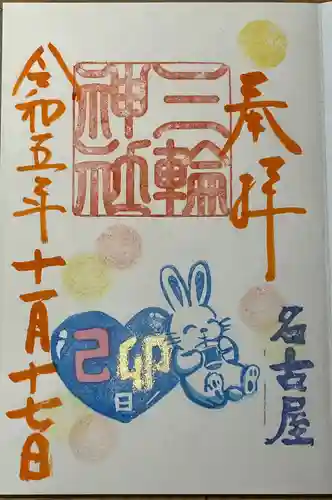 奉拝
三輪
神社
名古屋
己卯
日
令和五年十一月十七日